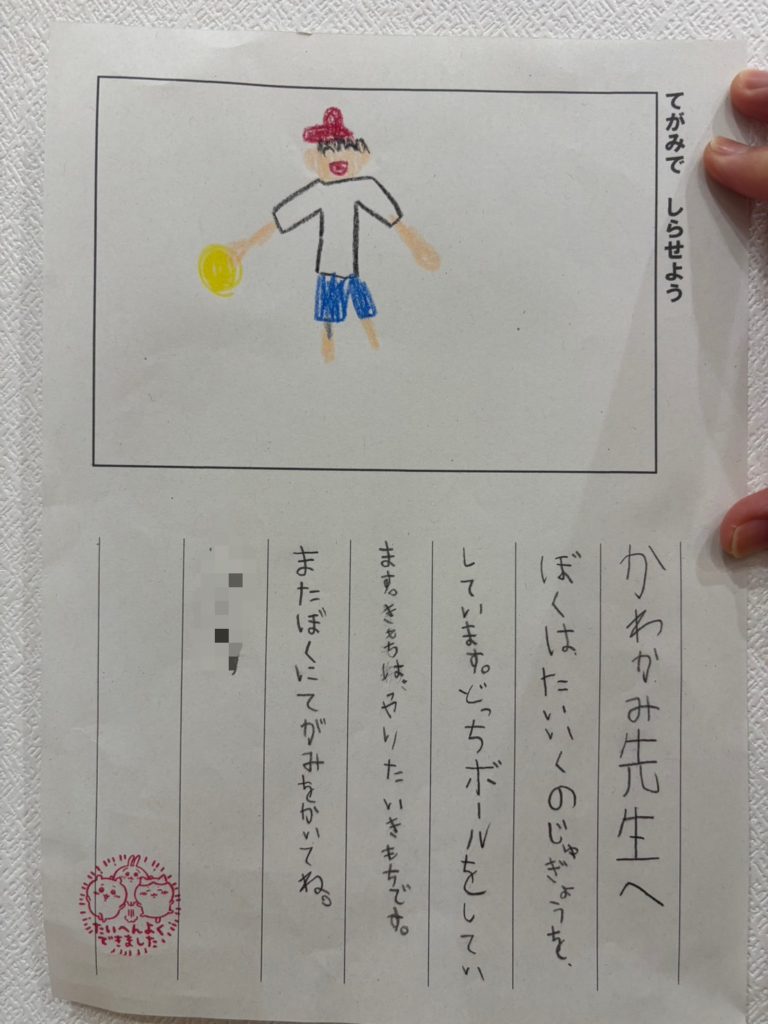 てがみで しらせよう
かわかみ先生へ
ぼくは、たいいくのじゅぎょうを、
しています。どっちボールをしてい
ます。きもちは、やりたいきもちです。
またぼくにてがみをかいてね。
たいへんよく
できました